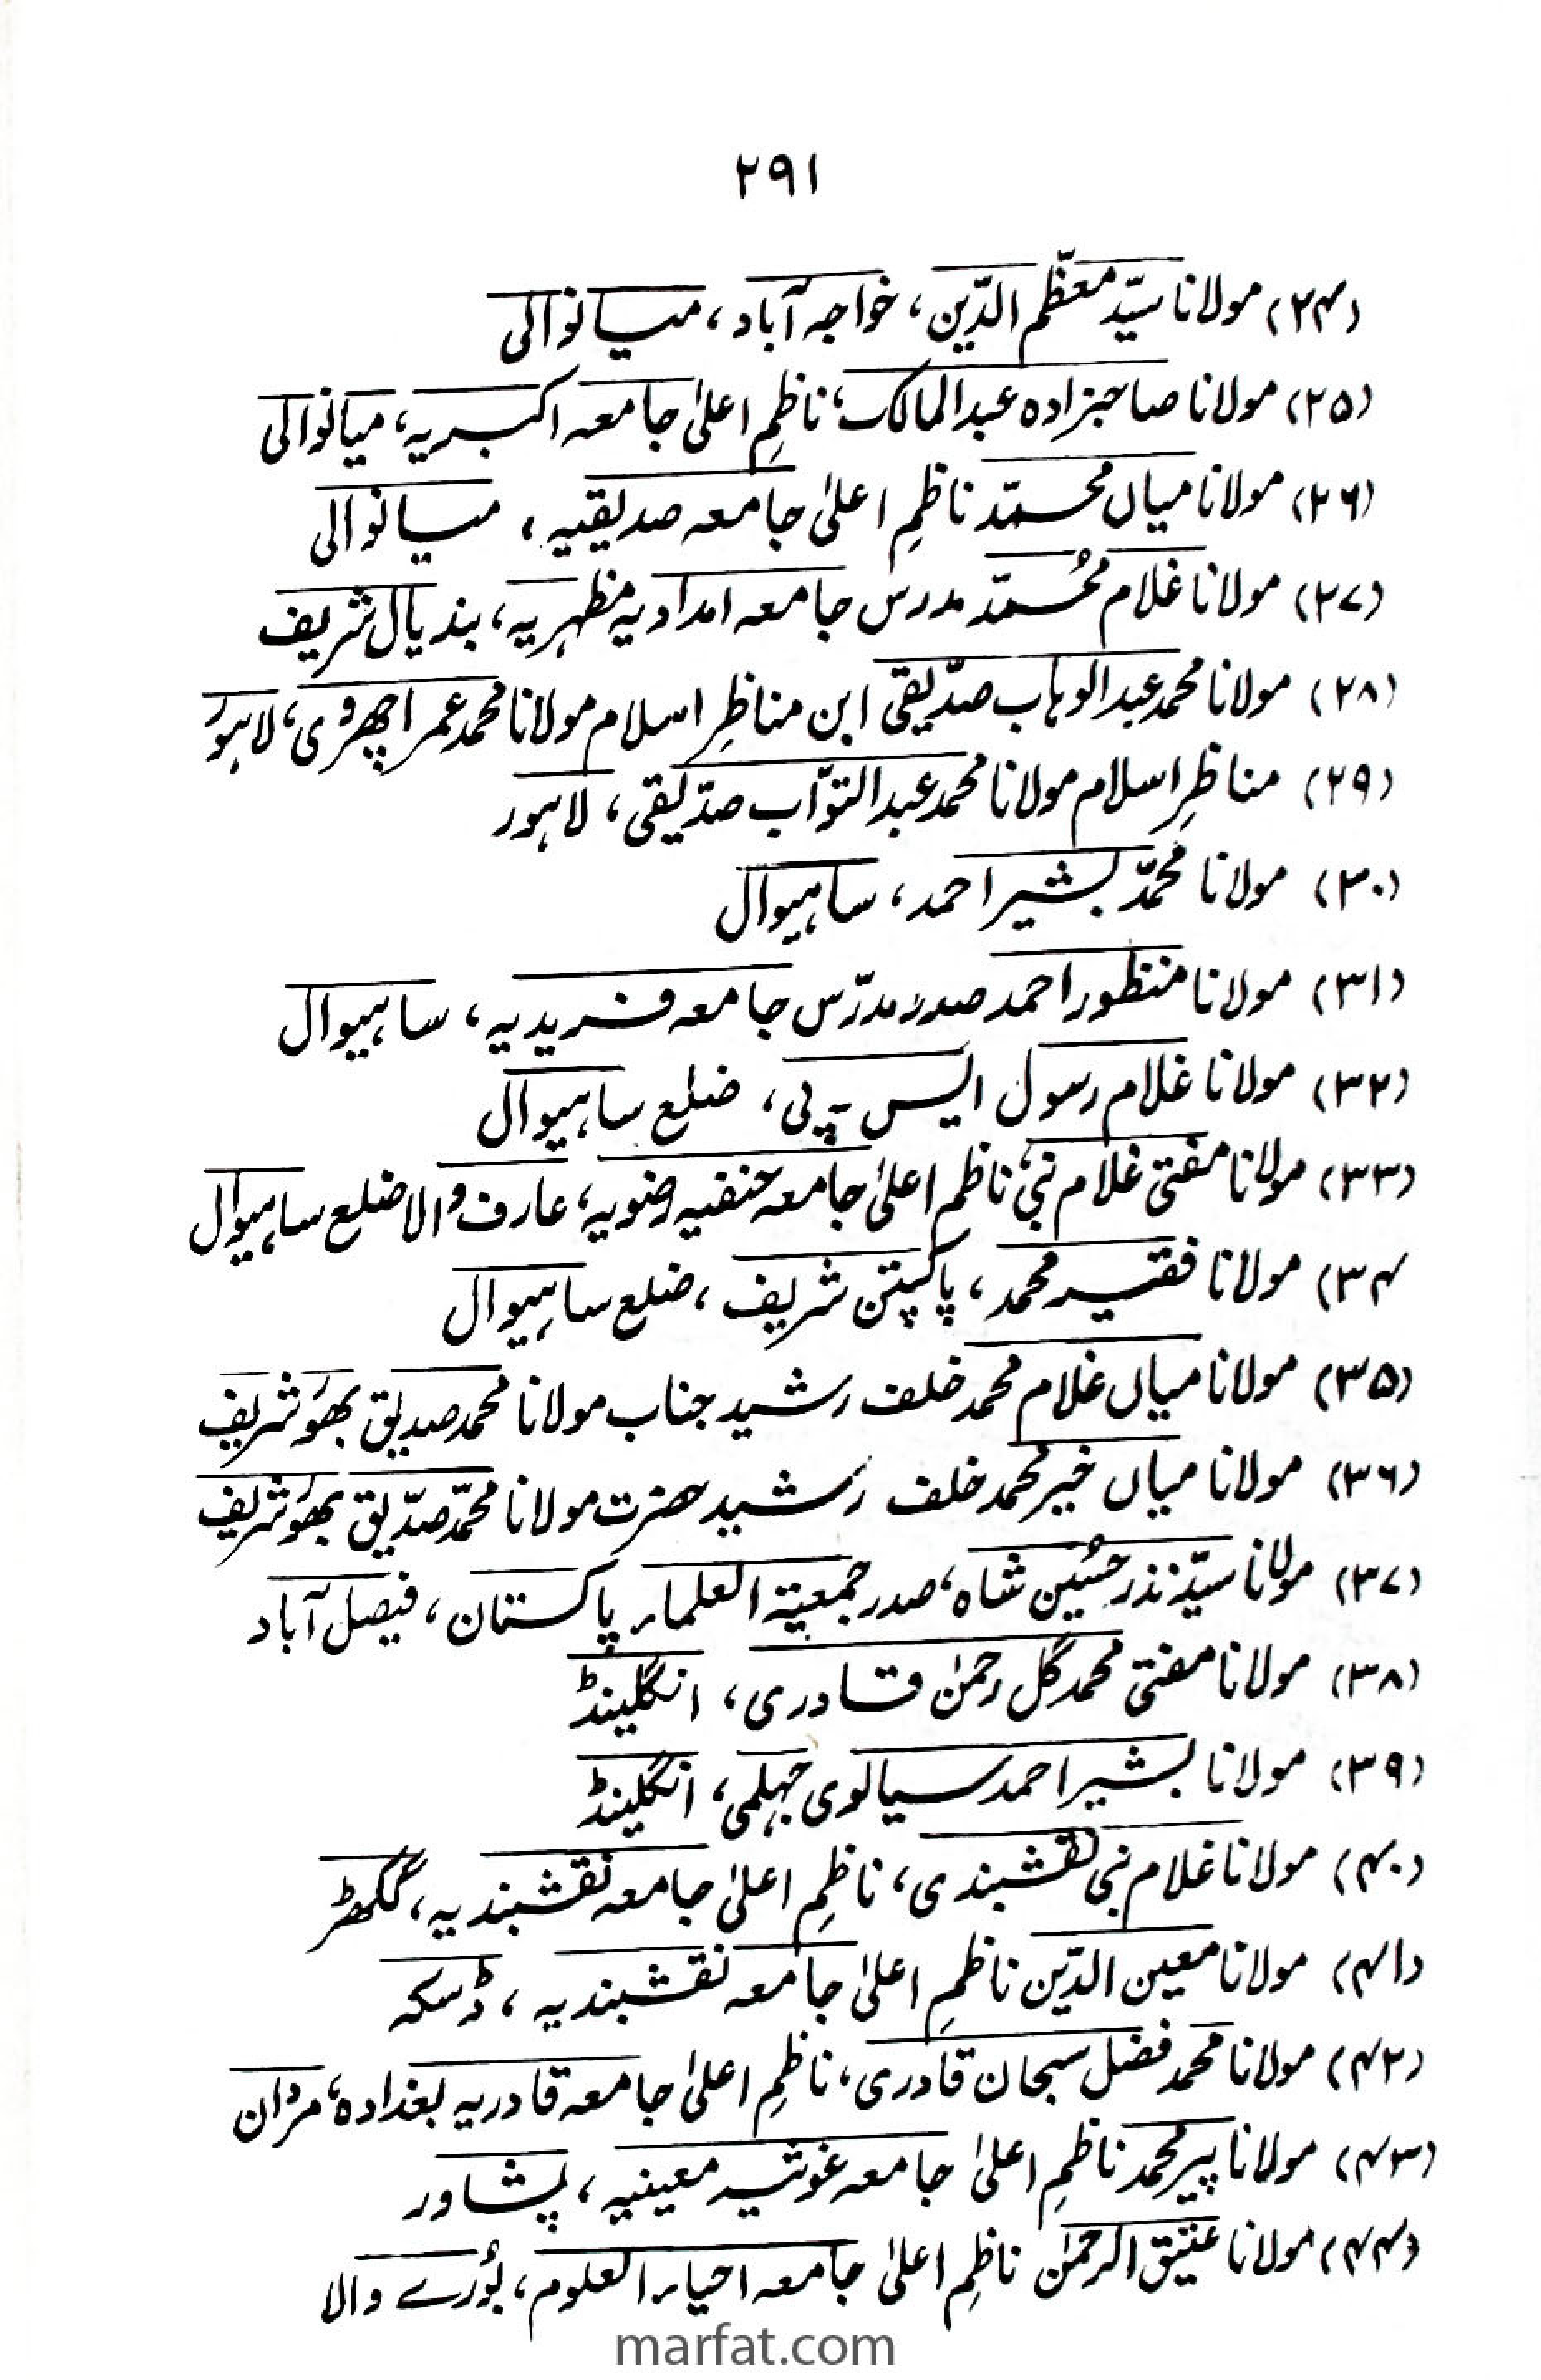 ۲۹۱
(۲۴) مولانا سیّد معظّم الدّین، خواجہ آباد، میانوالی
(۲۵) مولانا صاحبزادہ عبدالمالک، ناظمِ اعلیٰ جامعہ اکبریہ، میانوالی
(۲۶) مولانا میاں محمّد ناظمِ اعلیٰ جامعہ صدیقیہ، میانوالی
(۲۷) مولانا غلام محُمّد مدرس جامعہ امدادیہ مظہریہ، بندیال شریف
(۲۸) مولانا محمد عبدالوہاب صدّیقی ابن مناظرِ اسلام مولانا محمد عمر اچھروی، لاہور
(۲۹) مناظرِ اسلام مولانا محمد عبدالتوّاب صدّیقی، لاہور
(۳۰) مولانا محمّد بشیر احمد، ساہیوال
(۳۱) مولانا منظور احمد صدر مدرّس جامعہ فریدیہ، ساہیوال
(۳۲) مولانا غلام رسول ایس ۔ پی، ضلع ساہیوال
(۳۳) مولانا مفتی غلام نبی، ناظم اعلیٰ جامعہ حنفیہ رضویہ، عارف والا ضلع ساہیوال
۳۴) مولانا فقیر محمد، پاکپتن شریف، ضلع ساہیوال
(۳۵) مولانا میاں غلام محمد خلف رشید جناب مولانا محمد صدیق بھور شریف
(۳۶) مولانا میاں خیر محمد خلف رشید حضرت مولانا محمّد صدّیق بھور شریف
(۳۷) مولانا سیّد نذر حسُین شاہ، صدر جمعیۃ العلماء پاکستان، فیصل آباد
(۳۸) مولانا مفتی محمد گل رحمٰن قادری، انگلینڈ
(۳۹) مولانا بشیر احمد سیالوی جہلمی، انگلینڈ
(۴۰) مولانا غلام نبی نقشبندی، ناظمِ اعلیٰ جامعہ نقشبندیہ، گکھڑ
(۴۱) مولانا معین الدّین ناظمِ اعلیٰ جامعہ نقشبندیہ، ڈسکہ
(۴۲) مولانا محمد فضل سبحان قادری، ناظمِ اعلیٰ جامعہ قادریہ بغدادہ، مردان
(۴۳) مولانا پیر محمد ناظمِ اعلیٰ جامعہ غوثیہ معینیہ، پشاور
(۴۴) مولانا عتیق الرحمٰن ناظمِ اعلیٰ جامعہ احیاء العلوم، بُورے والا
marfat.com